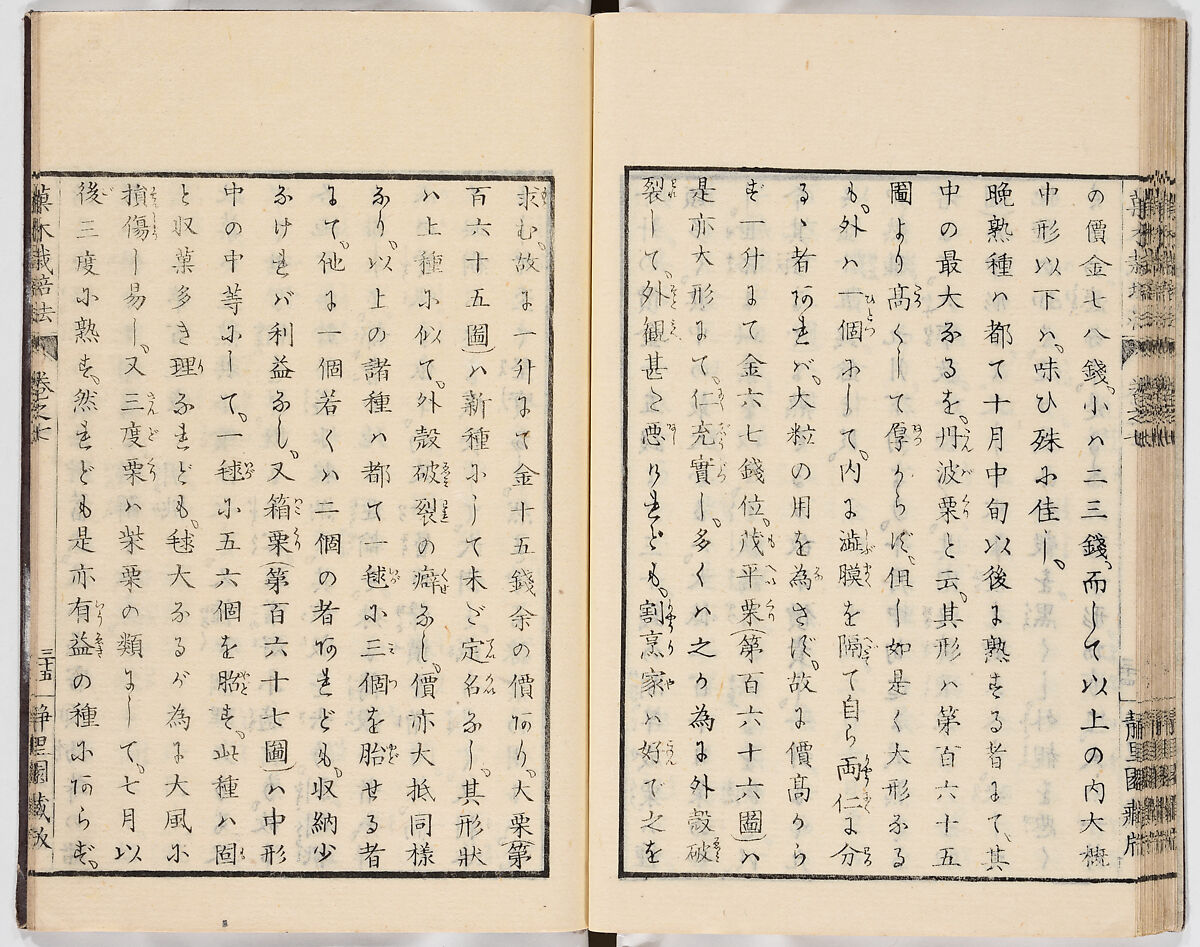 の價金七八錢、小ハ二三錢、而して以上の内大概
中形以下ハ、味ひ殊に佳し、
晩熟種ハ都て十月中旬以後に熟する者にて、其
中の最大なるを、丹波栗と云、其形ハ第百六十五
圖より髙くして厚からず、但し如是く大形なる
も、外ハ一個にして、内に澁膜を隔て自ら両仁に分
るゝ者あれバ、大粒の用を為さず、故に價髙から
ず一升にて金六七錢位、茂平栗(第百六十六圖)ハ
是亦大形にて、仁充實し、多くハ之か為に外殻破
裂して、外観甚た悪けれども、割烹家ハ好で之を
求む、故に一升にて金十五錢余の價あり、大栗(第
百六十五圖)ハ新種にして未だ定名なし、其形狀
ハ上種に似て、外殻破裂の癖なし、價亦大抵同様
なり、以上の諸種ハ都て一毬に三個を胎せる者
にて、他に一個若くハ二個の者あれども、収納少
なけれバ利益なし、又箱栗(第百六十七圖)ハ中形
中の中等にして、一毬に五六個を胎す、此種ハ固
と収菓多き理なれども、毬大なるが為に大風に
損傷し易し、又三度栗ハ柴栗の類にして、七月以
後三度に熟す、然れども是亦有益の種にあらず、
菓木栽培法 卷之七 三十五 静里園蔵版